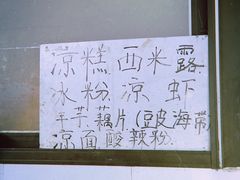 凉糕 西米露
冰粉 凉虾
洋芋.藕片(豆皮海带)
凉面酸辣粉